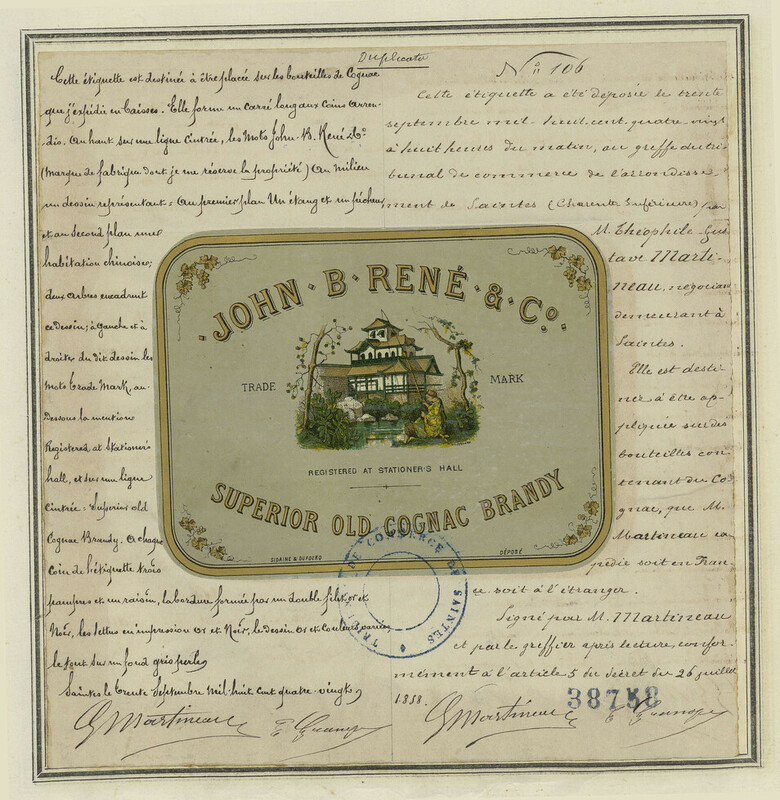 Duplicata
Cette étiquette est destinée à être placée sur les bouteilles de Cognac
que j'expédie en Caisses. Elle forme un carré long aux Coins arron-
dis. En haut sur une ligne Cintrée, les Mots John. B. René & Co
(Marque de fabrique dont je me réserve la propriété) Au milieu
un dessin représentant: Au premier plan Un étang et un pêcheur
et au second plan une
habitation chinoise;
deux arbres encadrent
ce dessin; à gauche et à
droite du dit dessin les
Mots Trade Mark, au-
Dessous la mention
Registered at Stationer's
hall, et sur une ligne
Cintrée: Superior old
Cognac Brandy. A chaque
Coin de l'étiquette trois
pampres et un raisin, la bordure formée par un double filet or et
Noir, les lettres en impression Or et Noir, le dessin Or et Couleurs variées,
le tout sur un fond gris perle,
Saintes le trente Septembre Mil. huit Cent quatre-vingts,
GMartineau
No 106
Cette étiquette a été déposée le trente
septembre mil-huit cent quatre-vingt
à huit heures du matin, au greffe du tri-
bunal de commerce de l'arrondisse-
ment de Saintes (Charente Inférieure) par
M. Théophile-Gus
tave Marti-
neau, négociant
demeurant à
Saintes.
Elle est desti-
née à être ap-
pliquée sur des
bouteilles con-
tenant du Co-
gnac, que M.
Martineau ex
pédie soit en Fran-
ce soit à l'étranger.
Signé par M. Martineau
et par le greffier après lecture, confor-
mément à l'article 5 du décret du 26 juillet
1858.
38758
GMartineau
JOHN · B · RENÉ · & · Co.
TRADE MARK
REGISTERED AT STATIONER'S HALL
SUPERIOR OLD COGNAC BRANDY
DÉPOSÉ
DE COMMERCE DE SAINTES